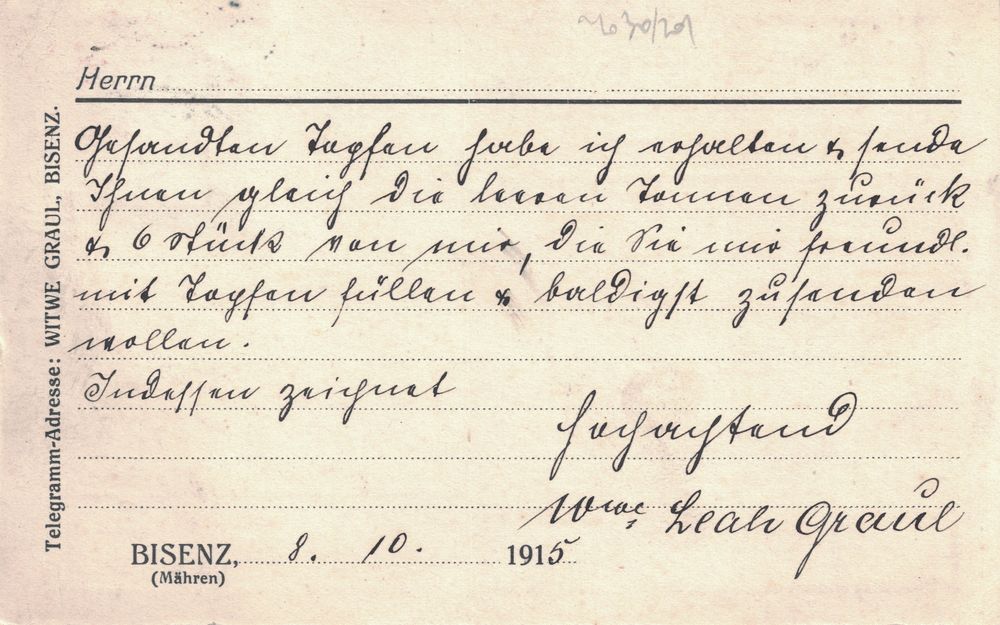 Herrn
Gesandten Topfen habe ich erhalten & sende
Ihnen gleich die leeren Tonnen zurück
& 6 Stück von mir, die Sie mir freundl.
mit Topfen füllen & baldigst zusenden
wollen.
Indessen zeichnet
hochachtend
Wwe Leah Graul
BISENZ, 8. 10. 1915
(Mähren)
Telegramm-Adresse: WITWE GRAUL, BISENZ.